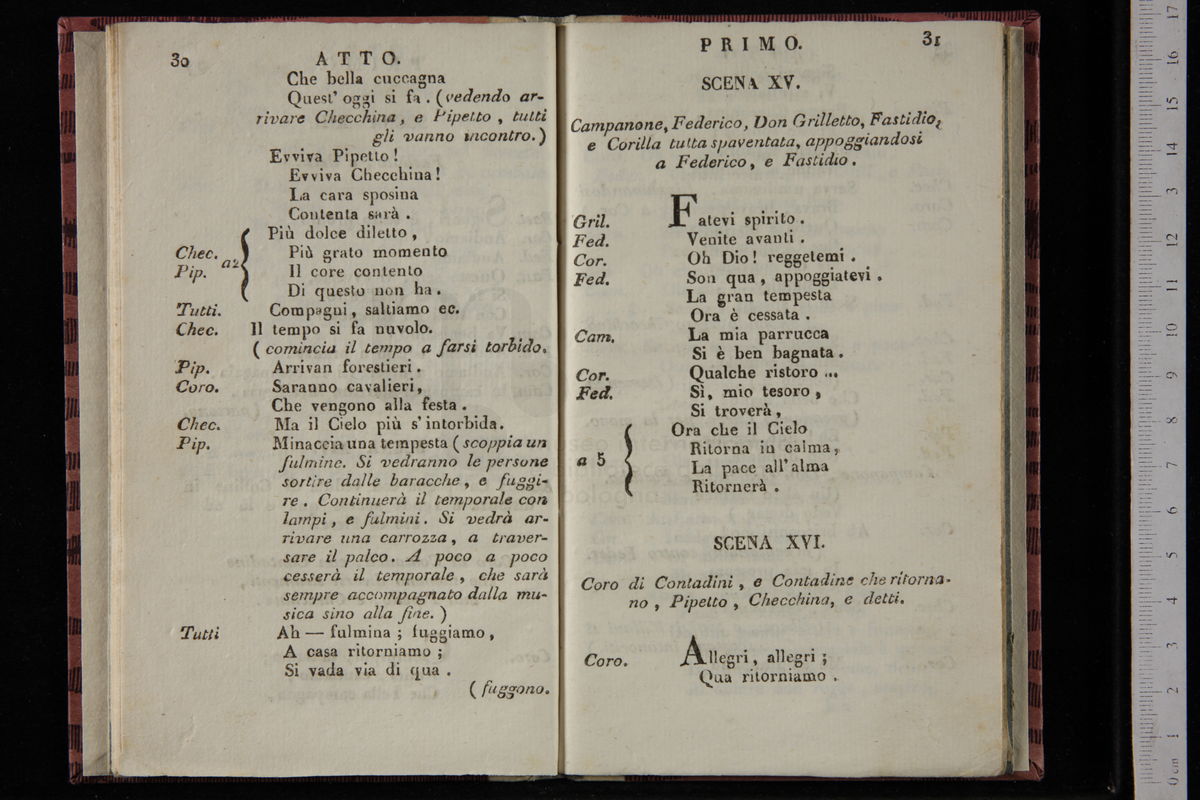 30
ATTO.
Che bella cuccagna
Quest' oggi si fa. (vedendo ar-
rivare Checchina, e Pipetto, tutti
gli vanno incontro.)
Evviva Pipetto!
Evviva Checchina!
La cara sposina
Contenta sarà.
Più dolce diletto,
Chec. Più grato momento
Pip. a 2 Il core contento
Di questo non ha.
Tutti. Compagni, saltiamo ec.
Chec. Il tempo si fa nuvolo.
( comincia il tempo a farsi torbido.
Pip. Arrivan forestieri.
Coro. Saranno cavalieri,
Che vengono alla festa.
Chec. Ma il Cielo più s' intorbida.
Pip. Minaccia una tempesta (scoppia un
fulmine. Si vedranno le persone
sortire dalle baracche, e fuggi-
re. Continuerà il temporale con
lampi, e fulmini. Si vedrà ar-
rivare una carrozza, a traver-
sare il palco. A poco a poco
cesserà il temporale, che sarà
sempre accompagnato dalla mu-
sica sino alla fine. )
Tutti Ah — fulmina ; fuggiamo,
A casa ritorniamo ;
Si vada via di qua.
( fuggono.
PRIMO.
31
SCENA XV.
Campanone, Federico, Don Grilletto, Fastidio,
e Corilla tutta spaventata, appoggiandosi
a Federico, e Fastidio.
Gril. Fatevi spirito.
Fed. Venite avanti.
Cor. Oh Dio! reggetemi.
Fed. Son qua, appoggiatevi.
La gran tempesta
Ora è cessata.
Cam. La mia parrucca
Si è ben bagnata.
Cor. Qualche ristoro ...
Fed. Sì, mio tesoro,
Si troverà,
Ora che il Cielo
Ritorna in calma,
a 5 La pace all' alma
Ritornerà.
SCENA XVI.
Coro di Contadini, e Contadine che ritorna-
no, Pipetto, Checchina, e detti.
Coro. Allegri, allegri ;
Qua ritorniamo.